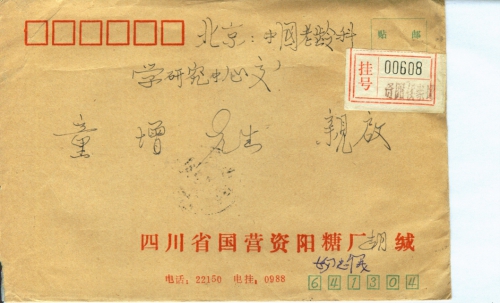 北京：中国老龄科
贴 邮
挂号 00608
学研究中心交
童 增 先生 親啟
四川省国营资阳糖厂 胡 缄
电话：22150 电挂：0988
641304